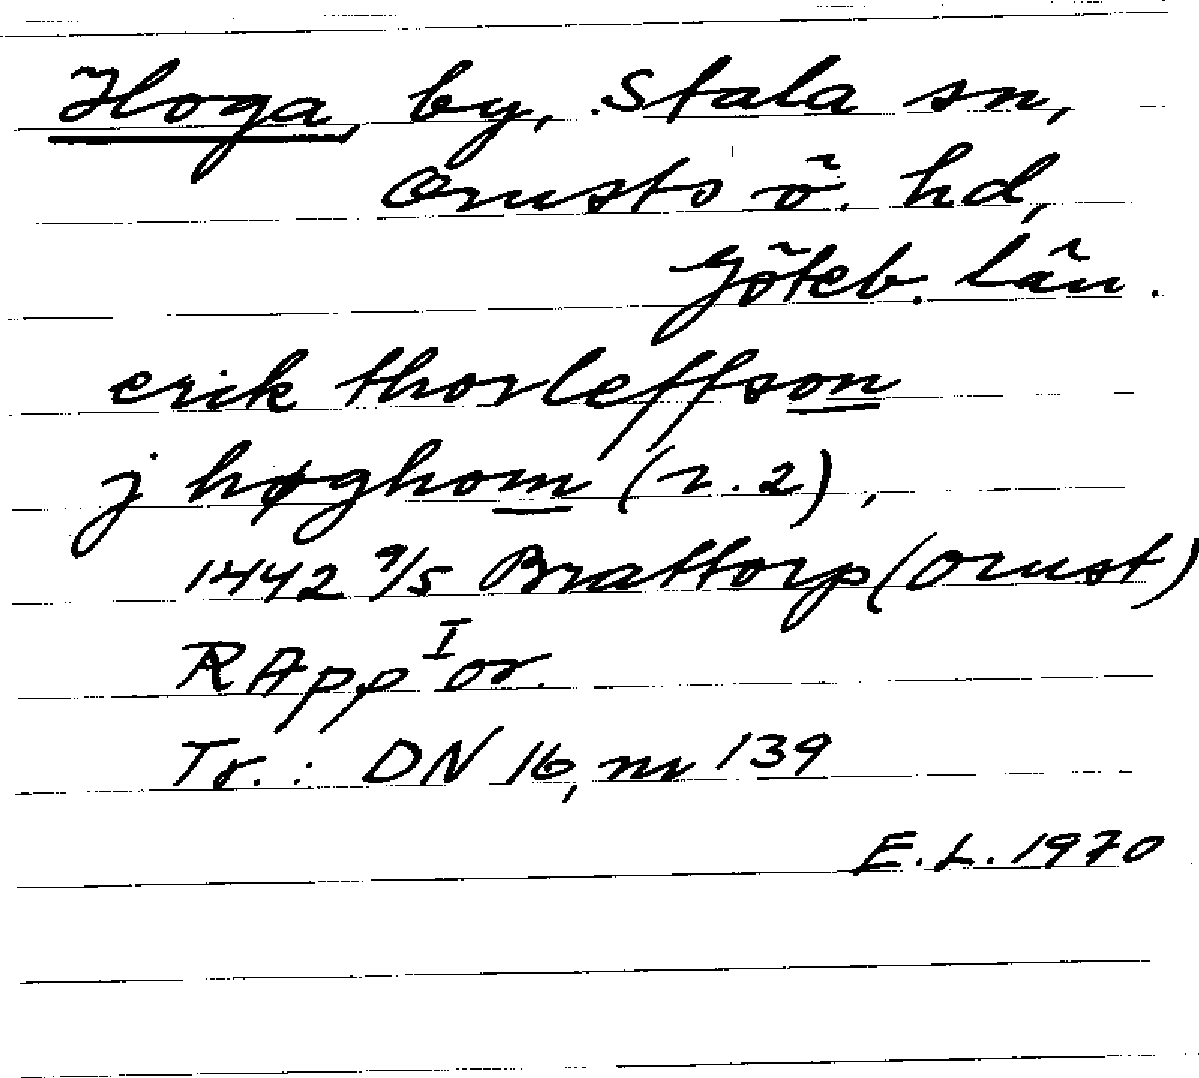 Hoga, by, Stala sn,
Orusts ö. hd,
Göteb. län.
erik thorleffson
j høghom (r. 2),
1442 9/5 Brattorp (Orust)
RApp I or.
Tr.: DN 16, nr 139
E.L. 1970